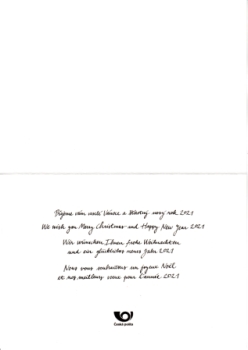 Přejeme vám veselé Vánoce a šťastný nový rok 2021
We wish you Merry Christmas and Happy New Year 2021
Wir wünschen Ihnen frohe Weihnachten
und ein glückliches neues Jahr 2021
Nous vous souhaitons un joyeux Noël
et nos meilleurs vœux pour l'année 2021
Česká pošta